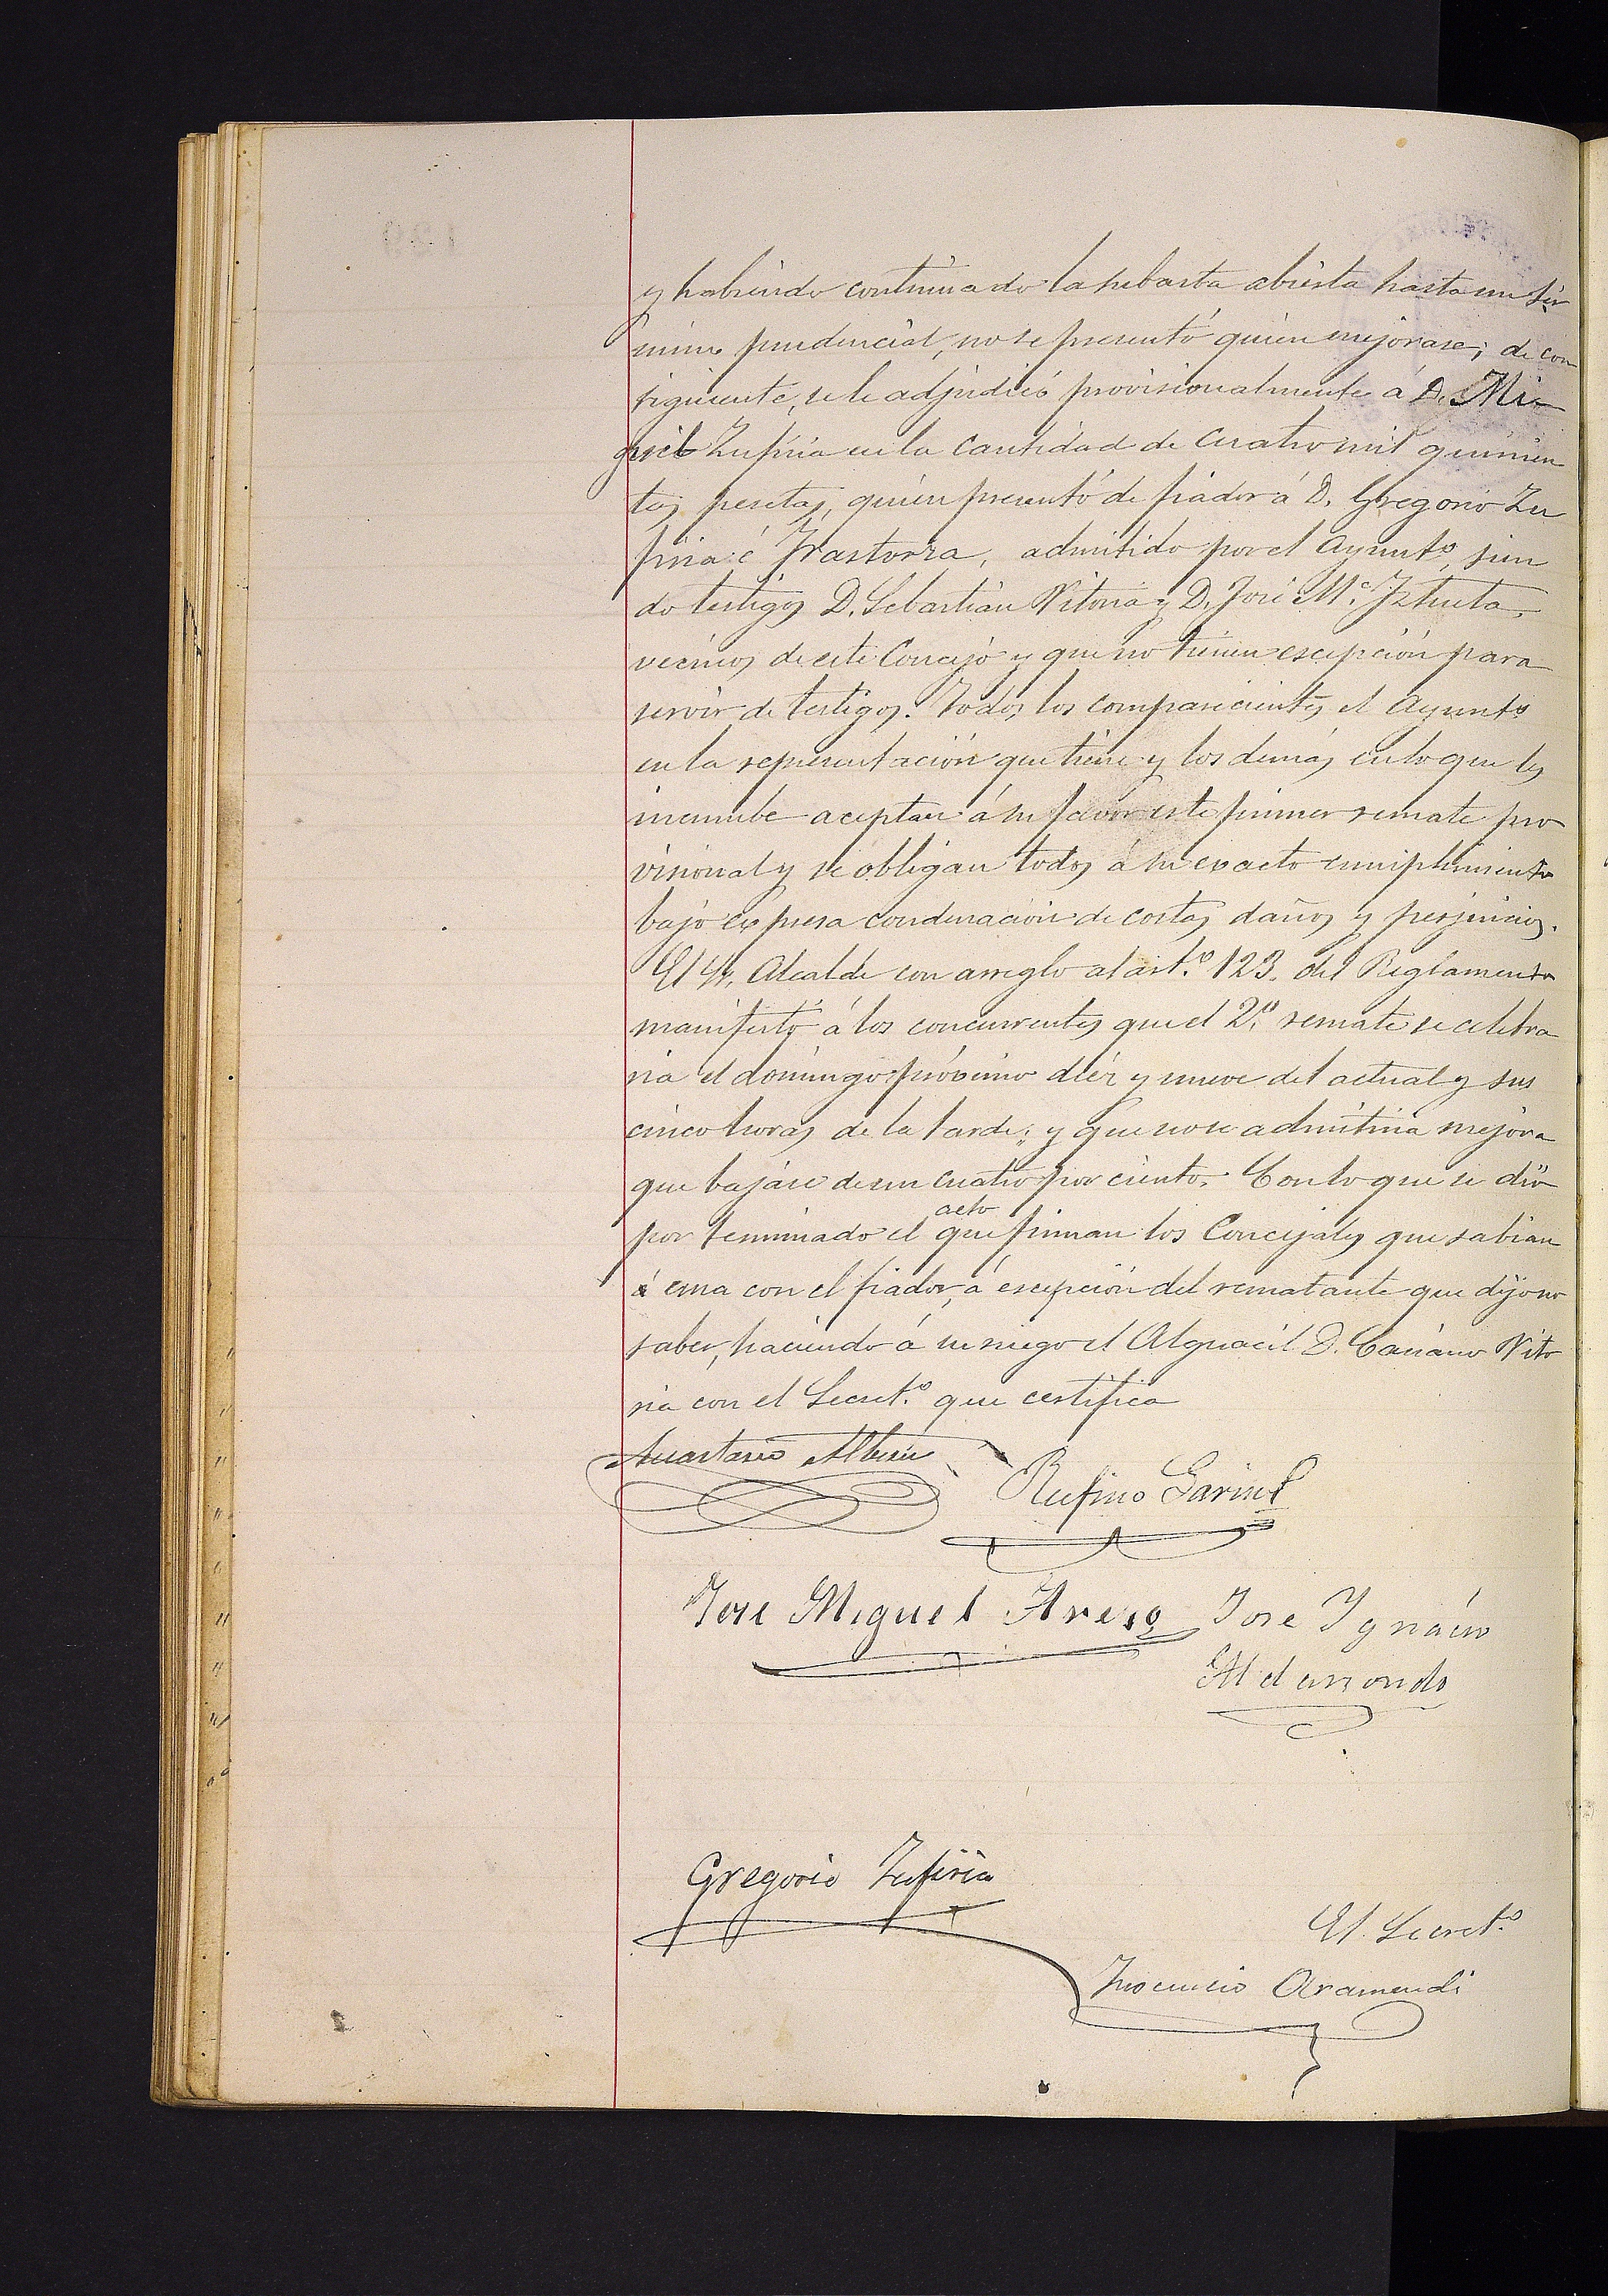 y habiendo continuado la subasta abierta hasta un tér
mino prudencial, no se presentó quien mejorase; de con
siguiente, se le adjudicó provisionalmente á D. Mi
guel Zufiria en la cantidad de cuatro mil quinien
tas pesetas, quien presentó de fiador á D. Gregorio Zu
firia é Irastorza, admitido por el Ayuntº, sien
do testigos D. Sebastián Vitoria y D. José Mª Iztueta,
vecinos de este Concejo y que no tienen escepción para
servir de testigos. Todos los comparecientes el Ayuntº
en la representación que tiene y los demás en lo que les
incumbe aceptan á su favor este primer remate pro
visional y se obligan todos á su exacto cumplimiento
bajo expresa condenación de costas daños y perjuicios.
El Sr. Alcalde con arreglo al art.º 123. del Reglamento
manifestó á los concurrentes que el 2.º remate se celebra
ría el domingo próximo diez y nueve del actual y sus
cinco horas de la tarde; y que no se admitiría mejora
que bajáse de un cuatro por ciento. Con lo que se dió
por terminado el acto que firman los Concejales que sabían
á una con el fiador, á escepción del rematante que dijo no
saber, haciendo á su ruego el Alguacil D. Vito
ria con el Secret.º que certifica
Anastasio
Rufino
José Miguel José Ygnácio
Aldanondo
Gregorio Zufiria
El Secret.º
Inocencio Aramendi